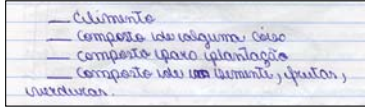 __ Cilimento
__ composto de alguma coisa
__ composto para plantação
__ composto de semente, frutas,
verduras.